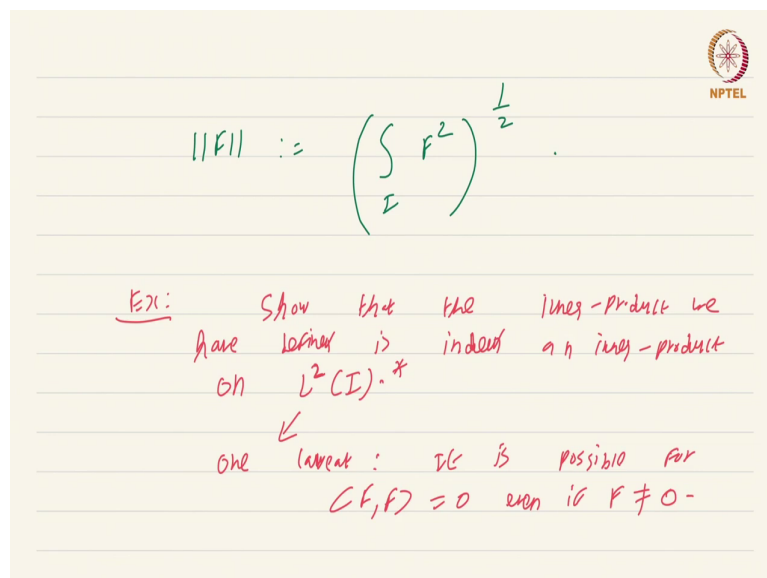 NPTEL
||F|| := (∫_I F²)^{1/2} .
Ex: Show that the inner-product we
have defined is indeed an inner-product
on L²(I).*
One caveat: It is possible for
⟨F,F⟩ = 0 even if F ≠ 0-